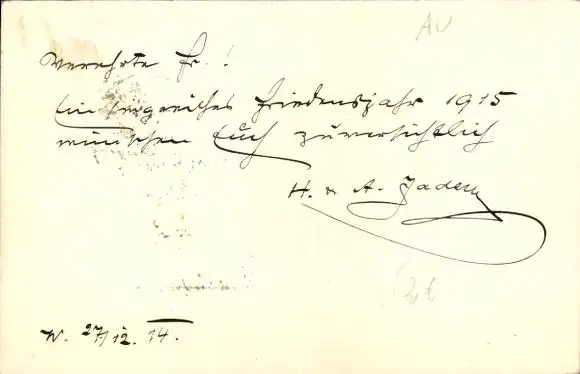 AU
Verehrte Fr.!
Ein siegreiches Friedensjahr 1915
wünschen Euch zuversichtlich
H. & A. Jadem
W. 27/12. 14.